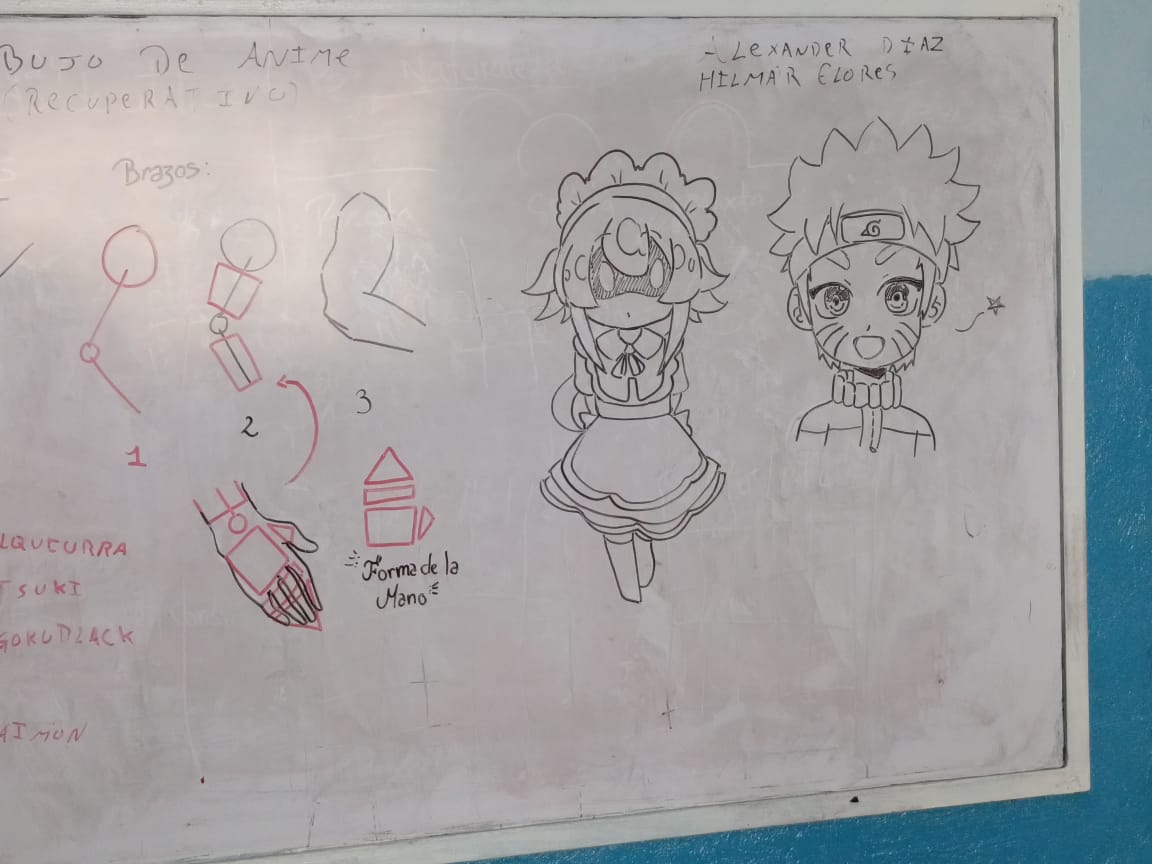 BUJO De ANIMe
(RecuPeRATIVO)
ALeXANDER DIAZ
HILMAR FLOReS
Brazos:
1
2
3
Forma de la
Mano
LQUEURRA
TSUKI
GOKUBLACK
AIMON